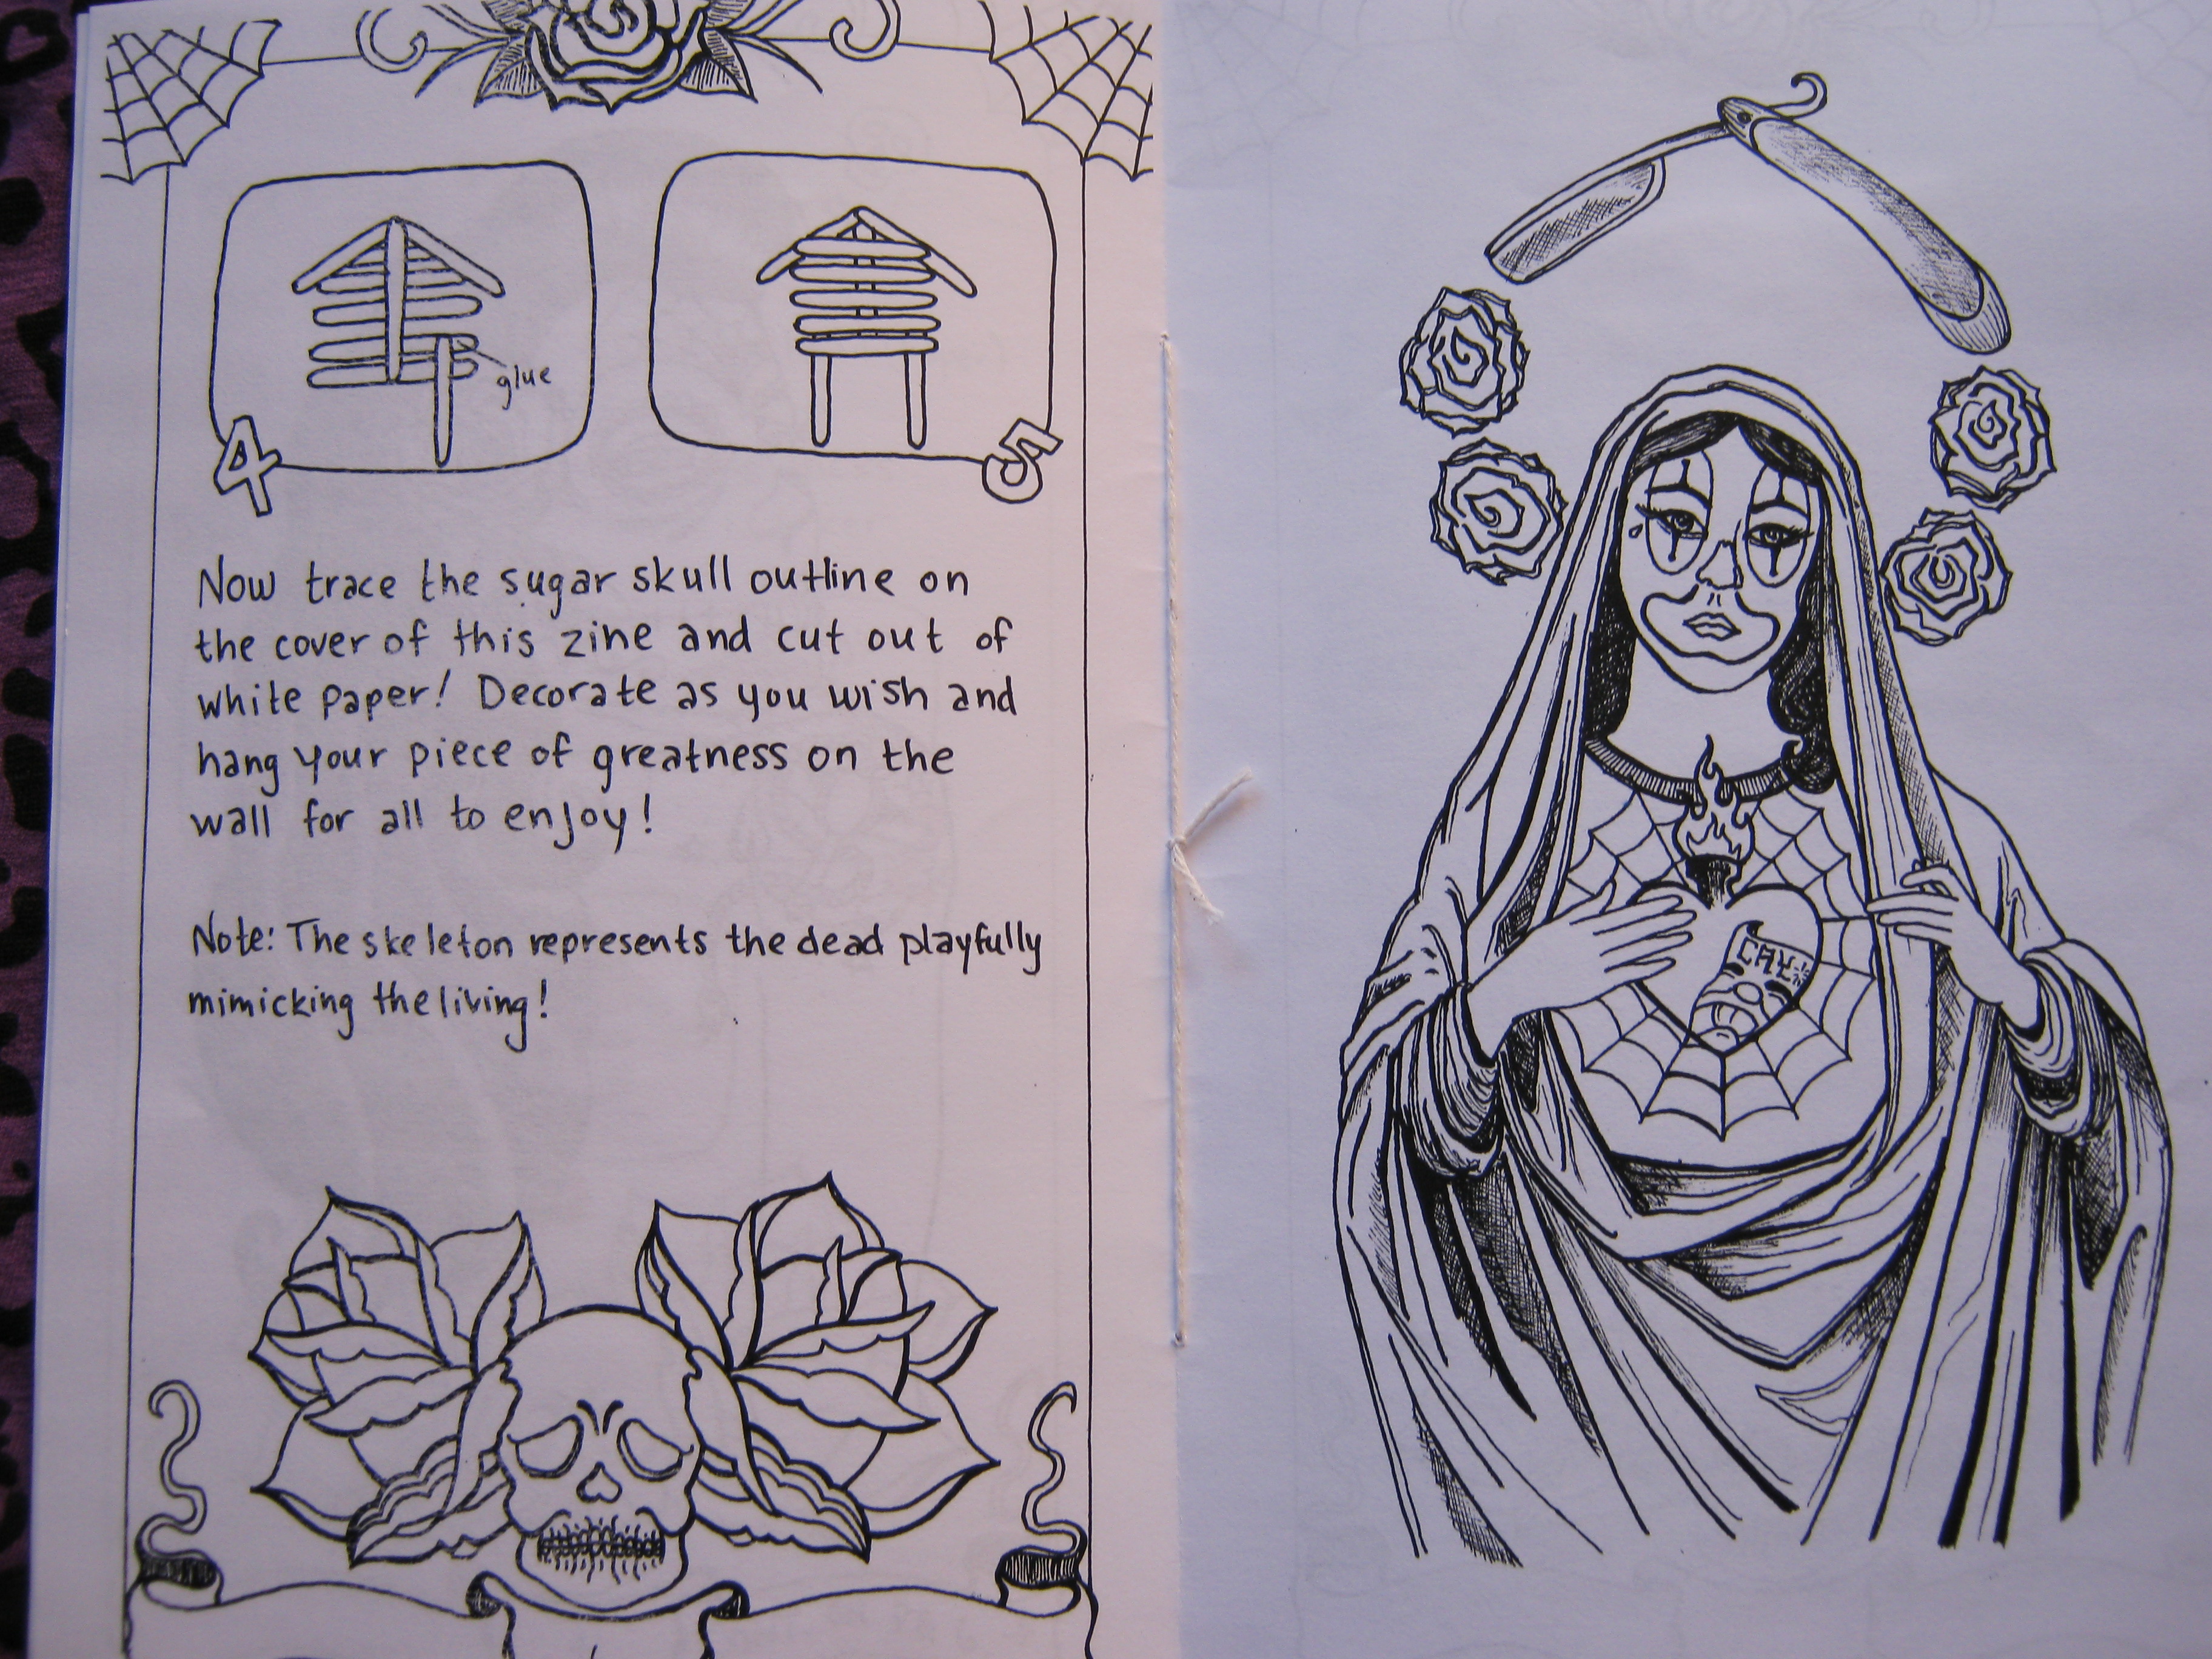 glue
4
5
Now trace the sugar skull outline on
the cover of this zine and cut out of
white paper! Decorate as you wish and
hang your piece of greatness on the
wall for all to enjoy!
Note: The skeleton represents the dead playfully
mimicking the living!